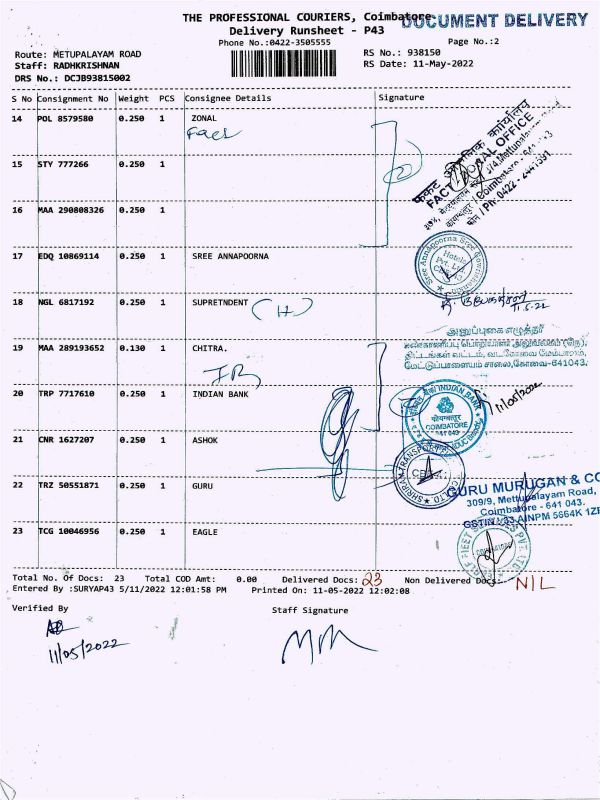 THE PROFESSIONAL COURIERS, Coimbatore
DOCUMENT DELIVERY
Delivery Runsheet - P43
Phone No.:0422-3505555
Page No.:2
Route: METUPALAYAM ROAD
RS No.: 938150
Staff: RADHKRISHNAN
RS Date: 11-May-2022
DRS No.: DCJB93815002
S No Consignment No Weight PCS Consignee Details Signature
14 POL 8579580 0.250 1 ZONAL
Fact
15 STY 777266 0.250 1
16 MAA 290808326 0.250 1
फैक्ट आंचलिक कार्यालय
FACT ZONAL OFFICE
Coimbatore - 641
Ph: 0422 - 2441591
17 EDQ 10869114 0.250 1 SREE ANNAPOORNA
Sree Annapoorna Sree Gowrishankar
Hotels
Pvt. Ltd.
18 NGL 6817192 0.250 1 SUPRETNDENT (H)
11.5.22
அனுப்புகை எழுத்தர்
கண்காணிப்பு பொறியாளர் அலுவலகம் (நெ),
திட்டங்கள் வட்டம், வடகோவை மேம்பாலம்,
மேட்டுப்பாளையம் சாலை,கோவை-641043.
19 MAA 289193652 0.130 1 CHITRA.
IB
20 TRP 7717610 0.250 1 INDIAN BANK
INDIAN BANK
कोयम्बत्तूर
COIMBATORE
641 043
11/05/2022
21 CNR 1627207 0.250 1 ASHOK
22 TRZ 50551871 0.250 1 GURU
GURU MURUGAN & CO
309/9, Mettupalayam Road,
Coimbatore - 641 043.
GSTIN : 33 AINPM 5664K 1ZE
23 TCG 10046956 0.250 1 EAGLE
Total No. Of Docs: 23 Total COD Amt: 0.00 Delivered Docs: 23 Non Delivered Docs: NIL
Entered By :SURYAP43 5/11/2022 12:01:58 PM Printed On: 11-05-2022 12:02:08
Verified By Staff Signature
11/05/2022